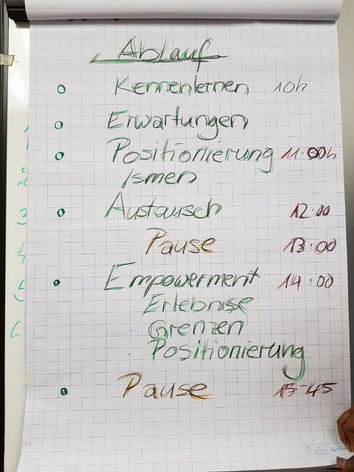 Ablauf
Kennenlernen 10h
Erwartungen
Positionierung 11:00h
Ismen
Austausch 12:00
Pause 13:00
Empowerment 14:00
Erlebnise
Grenzen
Positionierung
Pause 15-45
1
2
3
4
5
6